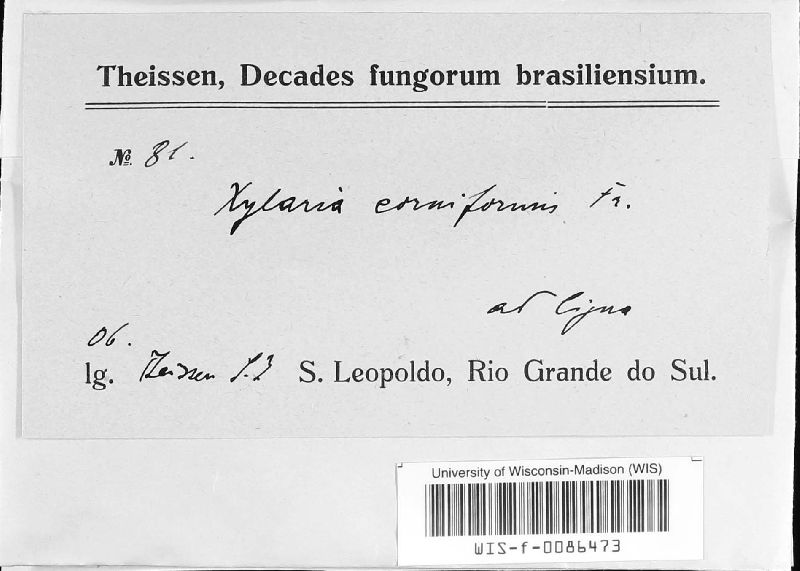 Theissen, Decades fungorum brasiliensium.
№ 81.
Xylaria corniformis Fr.
ad ligna
06.
lg. Theissen S.J S. Leopoldo, Rio Grande do Sul.
University of Wisconsin-Madison (WIS)
WIS-f-0086473